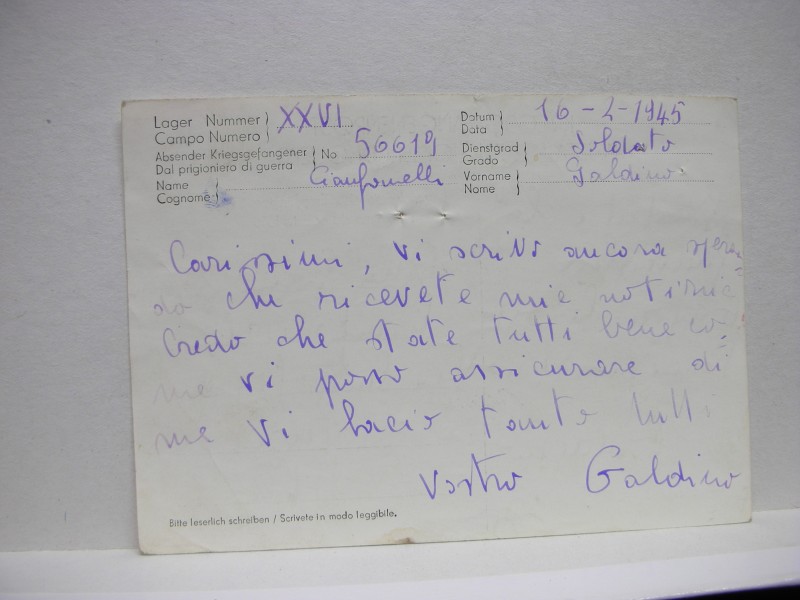 Lager Nummer } XXVI
Campo Numero }
Datum } 16-2-1945
Data }
Absender Kriegsgefangener } No 56619
Dal prigioniero di guerra }
Dienstgrad } Soldato
Grado }
Name } Gianfomelli
Cognome }
Vorname } Galdino
Nome }
Carissimi, vi scrivo ancora speran
do che ricevete mie notizie
Credo che state tutti bene co
me vi posso assicurare di
me vi bacio tanto tutti
Vostro Galdino
Bitte leserlich schreiben / Scrivete in modo leggibile.